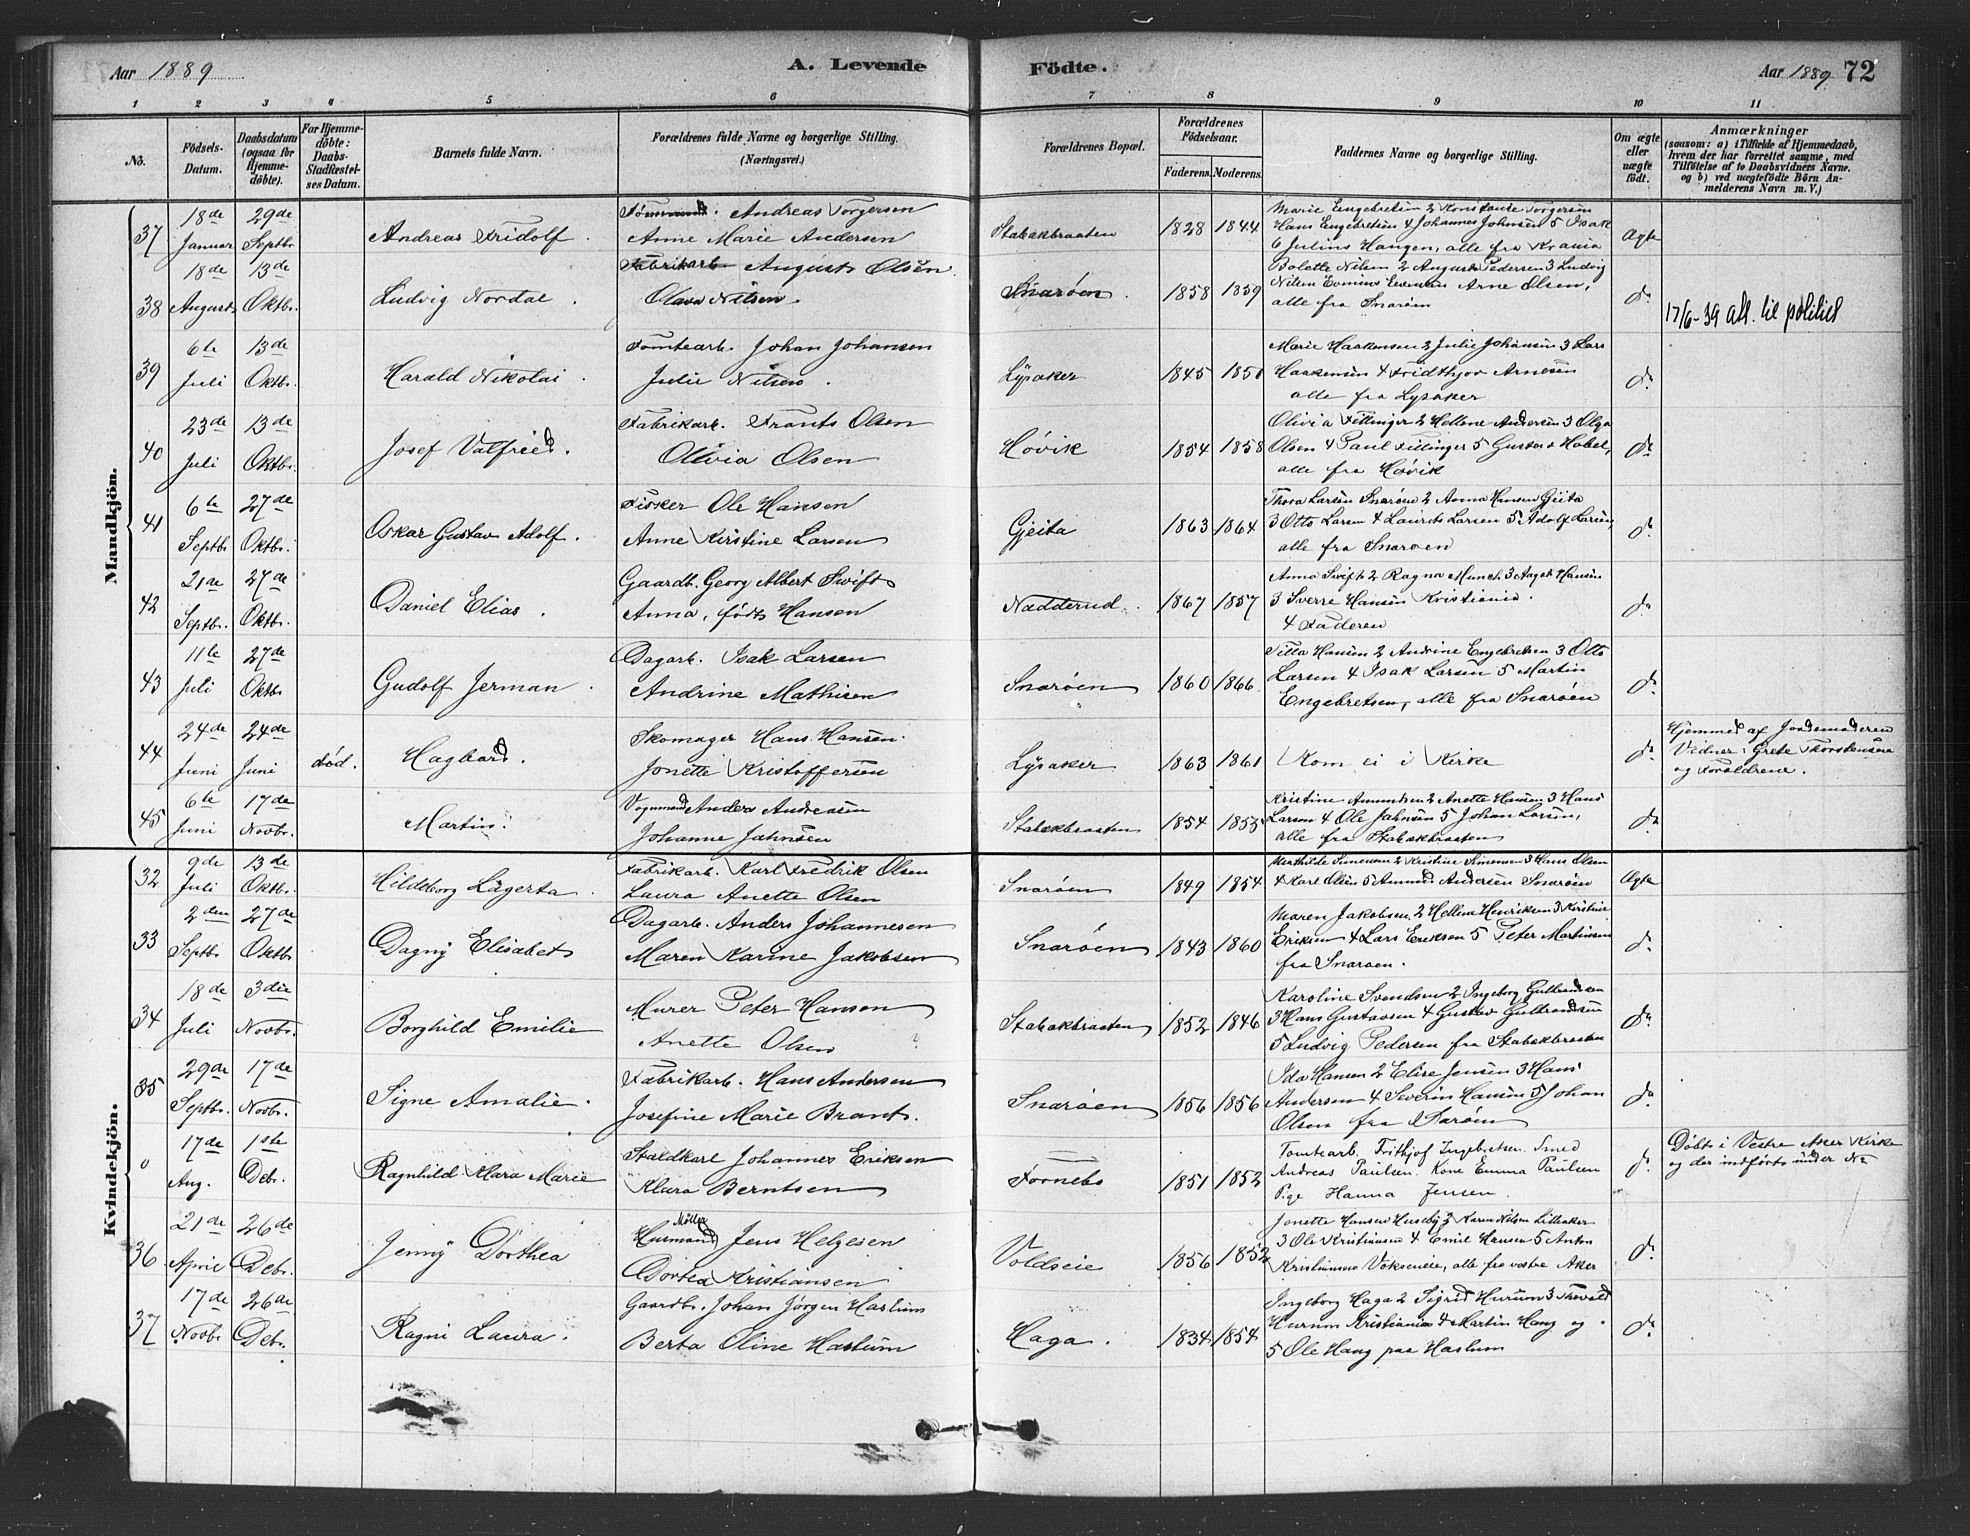 Aar 1889
A. Levende
Födte.
Aar 1889. 72
1 2 3 4 5 6 7 8 9 10 11
No.
Födsels-Datum.
Daabsdatum (ogsaa for Hjemme-döbte).
For Hjemme-döbte: Daabs-Stadfæstel-ses Datum.
Barnets fulde Navn.
Forældrenes fulde Navne og borgerlige Stilling. (Næringsvei.)
Forældrenes Bopæl.
Forældrenes Födselsaar.
Faderens. Moderens.
Faddernes Navne og borgerlige Stilling.
Om ægte eller uægte födt.
Anmærkninger
(saasom: a) i Tilfælde af Hjemmedaab, hvem der har forrettet samme, med Tilföielse af to Daabsvidners Navne. og b) ved uægtefödte Börn Anmelderens Navn m. V.)
Mandkjön.
37 18de Januar 29de Septbr. Andreas Fridolf.
Andreas Torgersen
Anne Marie Andersen
Stabækbraaten 1828 1844
Marie Engebretsen 2 Konstanse Torgersen
Hans Engebretsen 4 Johannes Johnsen 5 Isak
6 Julius Haugen, alle fra Krania
Ægte
38 18de August 13de Oktbr. Ludvig Nordal.
Fabrikarb. August Olsen.
Olava Nilsen.
Snarøen. 1858 1859
Bolette Nilsen 2 August Pedersen 3 Ludvig
Nilsen Arne Olsen,
alle fra Snarøen
do
17/6-39 att. til politiet
39 6te Juli 13de Oktbr. Harald Nikolai.
Tomtearb. Johan Johansen
Julie Nilsen.
Lysaker 1845 1850
Marie Haakensen 2 Julie Johansen 3 Lars
Haakensen 4 Fridthjov Arnesen
alle fra Lysaker
do
40 23de Juli 13de Oktbr. Josef Valfried.
Fabrikarb. Frants Olsen
Olivia Olsen
Høvik 1854 1858
Olivia Fittinger 2 Hellene Andersen 3 Olga
Olsen 4 Paul Fittinger 5 Gustav Habel,
alle fra Høvik
do
41 6te Septbr. 27de Oktbr. Oskar Gustav Adolf.
Fisker Ole Hansen
Anne Kirstine Larsen
Gjeita 1863 1864
Thora Larsen Snarøen 2 Anna Hansen Gjeita
3 Otto Larsen 4 Laurits Larsen 5 Adolf Larsen
alle fra Snarøen
do
42 21de Septbr. 27de Oktbr. Daniel Elias.
Gaardb. Georg Albert Swift
Anna, født Hansen
Nadderud. 1867 1857
Anna Swift 2 Ragna Munch 3 Aagot Hansen
3 Sverre Hansen Kristiania.
4 Faderen
do
43 11te Juli 27de Oktbr. Gudolf Jerman.
Dagarb. Isak Larsen
Andrine Mathisen
Snarøen 1860 1866
Hansen 2 Andrine Engebretsen 3 Otto
Larsen 4 Isak Larsen 5 Martin
Engebretsen, alle fra Snarøen
do
44 24de Juni 24de Juni død. Hagbard.
Skomager Hans Hansen.
Jonette Kristoffersen
Lysaker 1863 1861
Kom ei i Kirke
do
Hjemmed. af Jordemoderen
Vidner: Grete Thorstensen
og Forældrene.
45 6te Juni 17de Novbr. Martin.
Vognmand Anders Andreasen
Johanne Jahnsen
Stabækbraaten 1854 1855
Kristine Amundsen 2 Anette Hansen 3 Hans
Larsen 4 Ole Jahnsen 5 Johan Larsen,
alle fra Stabækbraaten
do
Kvindekjön.
32 9de Juli 13de Oktbr. Hildborg Lagerta.
Fabrikarb. Karl Fredrik Olsen
Laura Anette Olsen
Snarøen 1849 1854
Mathilde Simensen 2 Kristine Simensen 3 Hans Olsen
4 Karl Olsen 5 Amund Andersen Snarøen
Ægte
33 2den Septbr. 27de Oktbr. Dagny Elisabet
Dagarb. Anders Johannesen
Maren Karine Jakobsen
Snarøen 1843 1860
Maren Jakobsen 2 Hellene Henriksen 3 Kirstine
Eriksen 4 Lars Eriksen 5 Peter Martinsen
fra Snarøen.
do
34 18de Juli 3die Novbr. Borghild Emilie
Murer Peter Hansen
Anette Olsen ?
Stabækbraaten 1852 1846
Karoline Svendsen 2 Ingeborg Gulbrandsen
3 Hans Gustavsen 4 Gustav Gulbrandsen
5 Ludvig Pedersen fra Stabækbraaten
do
35 29de Septbr. 17de Novbr. Signe Amalie.
Fabrikarb. Hans Andersen
Josefine Marie Brant.
Snarøen 1856 1856
Ida Hansen 2 Elise Jensen 3 Hans
Andersen 4 Severin Hansen 5 Johan
Olsen fra Snarøen
do
0 17de Aug. 1ste Debr. Ragnhild Klara Marie
Staldkarl Johannes Eriksen
Klara Berntsen
Fornebo 1851 1852
Tomtearb. Frithjof Ingebretsen. Smed
Andreas Paulsen. Kone Emma Paulsen
Pige Hanna Jensen.
do
Døbt i Vestre Aker Kirke
og der indført under No
36 21de April 26de Debr. Jenny Dorthea
Møller
Husmand Jens Helgesen
Dortea Kristiansen
Voldseie 1856 1852
Jonette Hansen Huseby 2 Karen Nilsen Lilleaker
3 Ole Kristiansen 4 Emil Hansen 5 Anton
Kristiansen Vokseneie, alle fra vestre Aker
do
37 17de Novbr. 26de Debr. Ragni Laura.
Gaardbr. Johan Jørgen Haslum
Berta Oline Haslum
Haga. 1834 1854
Ingeborg Haga 2 Sigrid Hurum 3 Torvald
Hurum Kristiania 4 Martin Haug og
5 Ole Haug paa Haslum
do